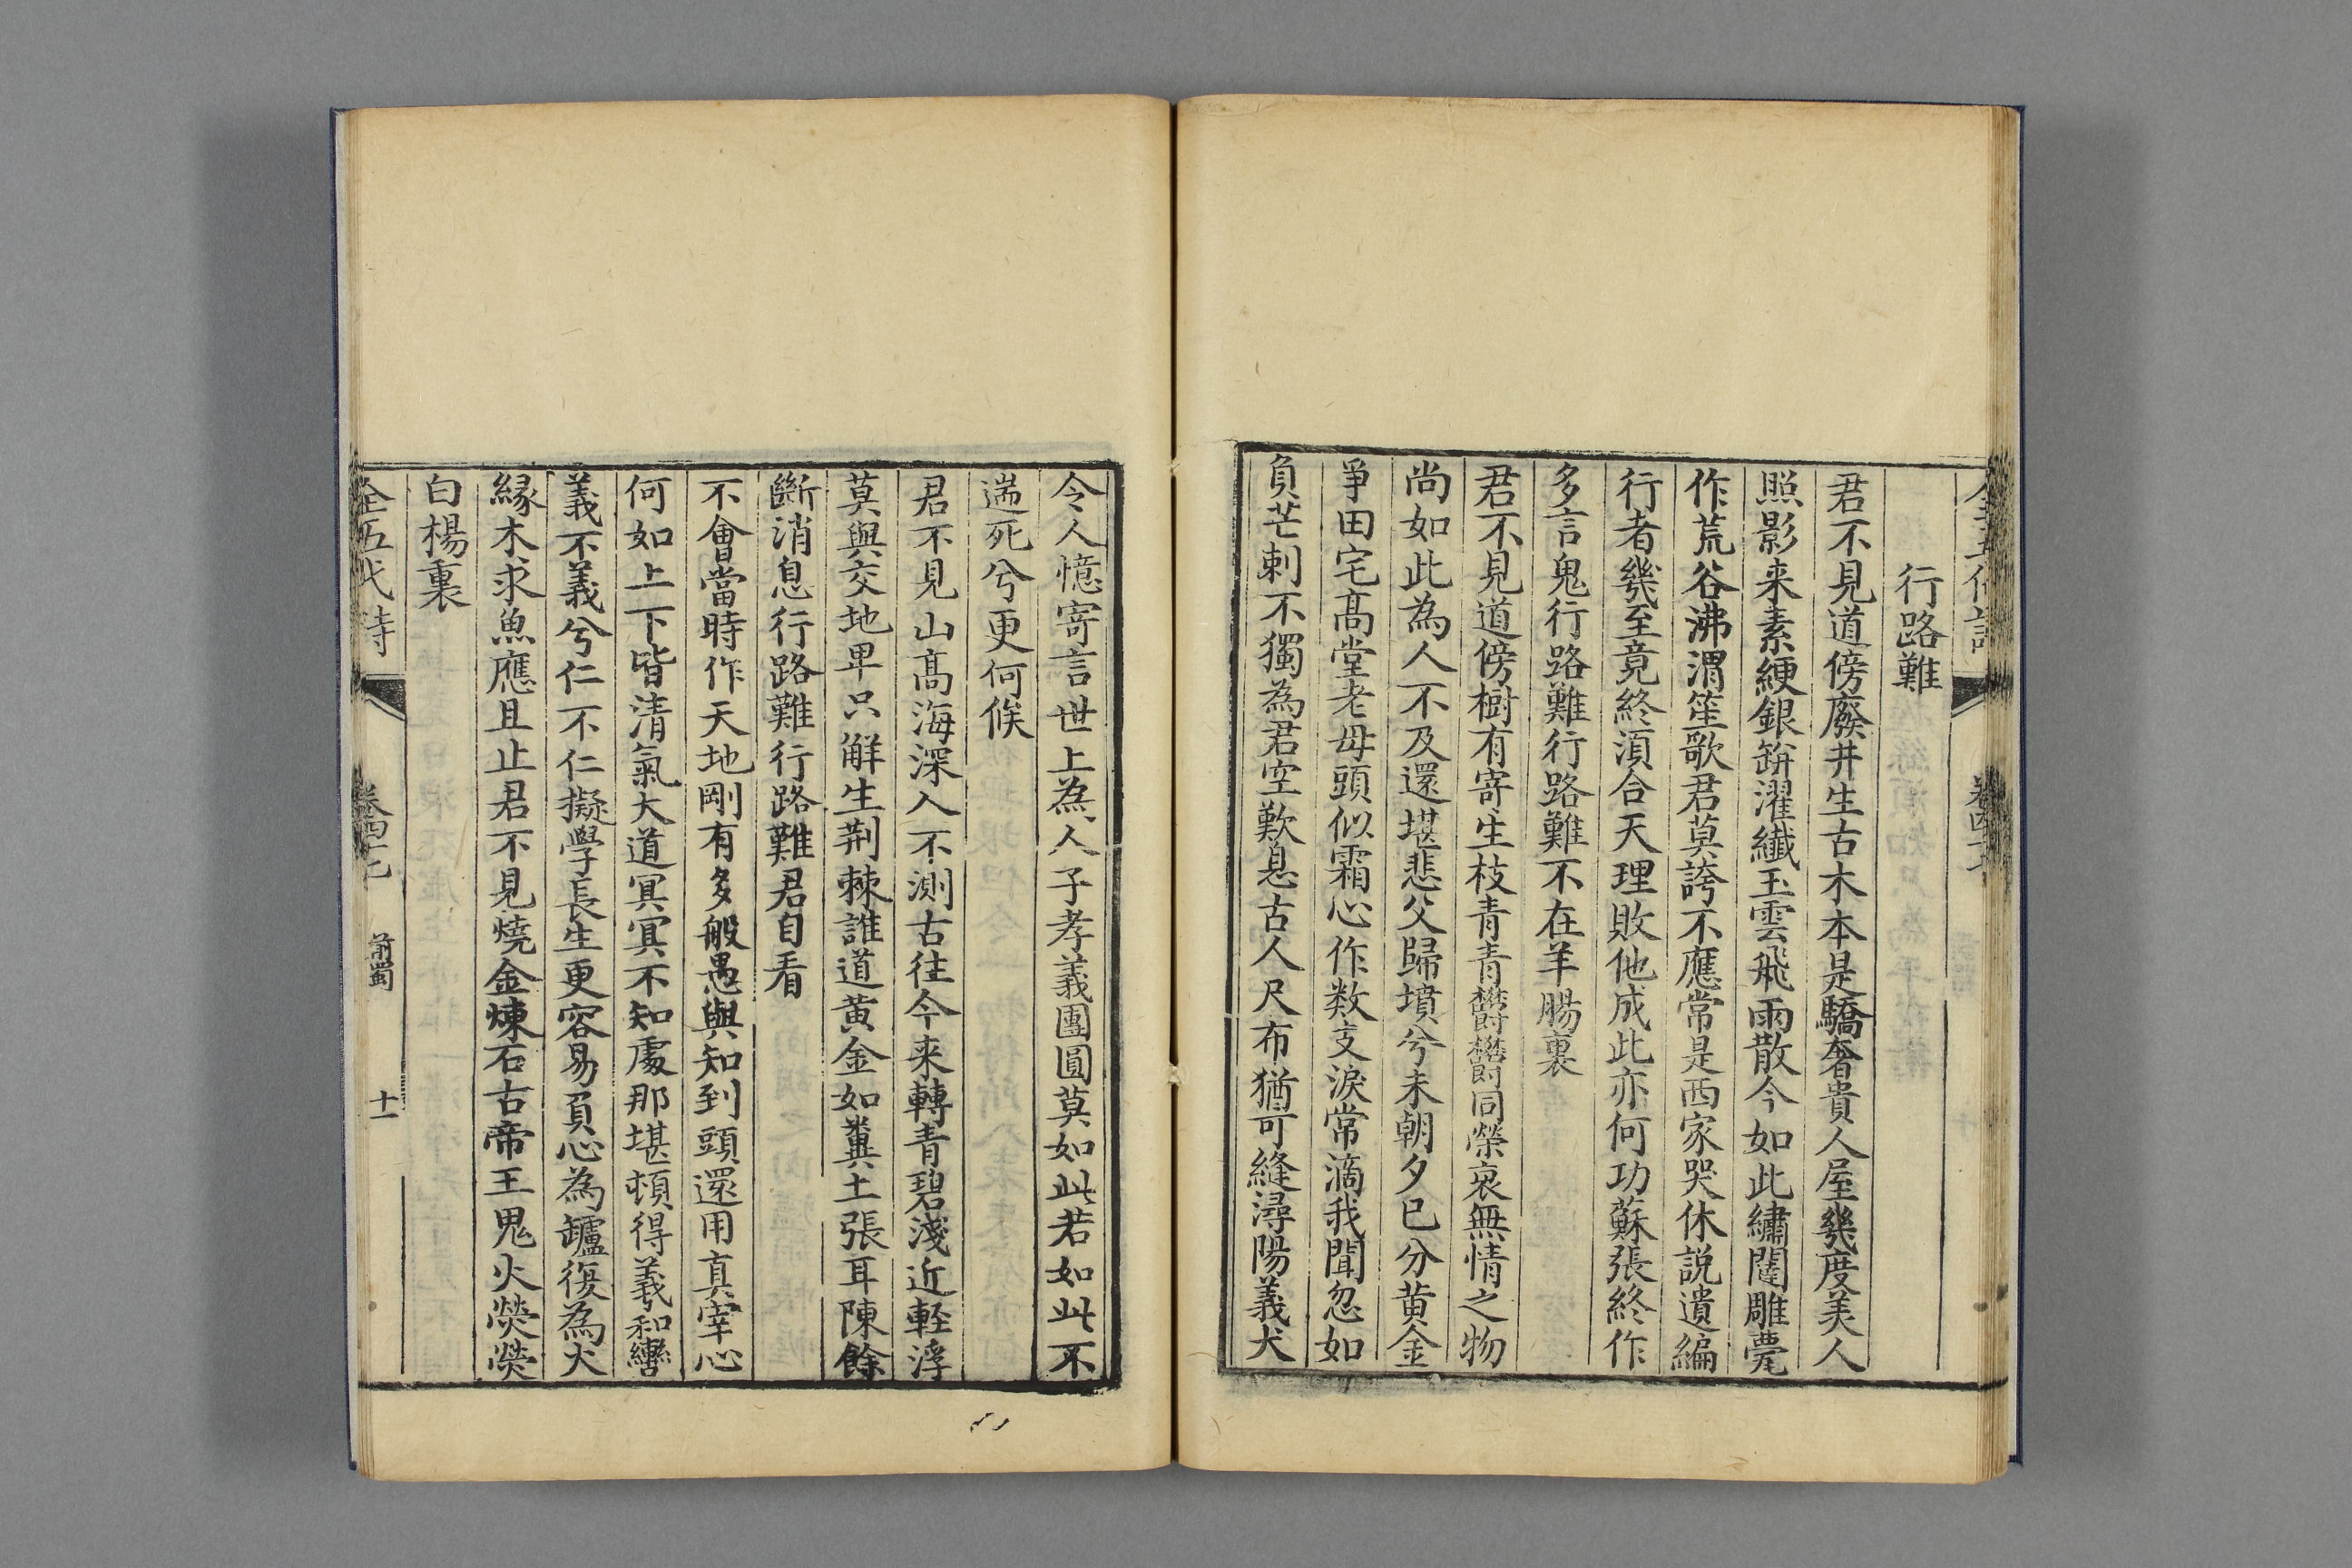 行路難
君不見道傍廢井生古木本是驕奢貴人屋幾度美人
照影来素綆銀缾濯纖玉雲飛雨散今如此繡闥雕甍
作荒谷沸渭笙歌君莫誇不應常是西家哭休説遺編
行者幾至竟終須合天理敗他成此亦何功蘇張終作
多言鬼行路難行路難不在羊腸裏
君不見道傍樹有寄生枝青青欝欝同榮衰無情之物
尚如此為人不及還堪悲父歸墳兮未朝夕已分黄金
爭田宅髙堂老母頭似霜心作数支淚常滴我聞忽如
負芒刺不獨為君空歎息古人尺布猶可縫潯陽義犬
令人憶寄言世上為人子孝義團圓莫如此若如此不
遄死兮更何俟
君不見山髙海深人不測古往今来轉青碧淺近輕浮
莫與交地卑只解生荆棘誰道黄金如糞土張耳陳餘
斷消息行路難行路難君自看
不會當時作天地剛有多般愚與知到頭還用真宰心
何如上下皆清氣大道冥冥不知處那堪頓得羲和轡
義不義兮仁不仁擬學長生更容易負心為鑪復為火
緣木求魚應且止君不見燒金煉石古帝王鬼火熒熒
白楊裏
全五代詩 卷四十七 前蜀 十一